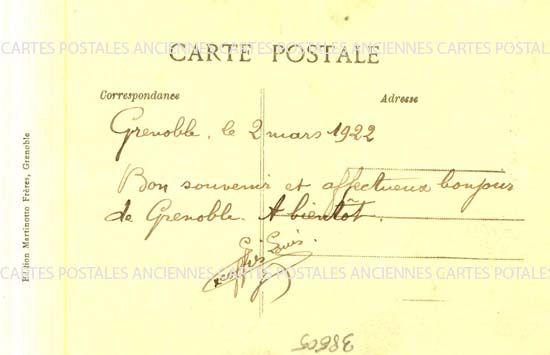 CARTES POSTALES ANCIENNES CARTES POSTALES ANCIENNES CARTES POSTALES
CARTE POSTALE
Correspondance
Adresse
Grenoble, le 2 mars 1922
Bon souvenir et affectueux bonjour
de Grenoble. A bientôt.
Louis.
Edition Martinotto Frères, Grenoble
CARTES POSTALES ANCIENNES CARTES POSTALES ANCIENNES CARTES POSTALES
38505